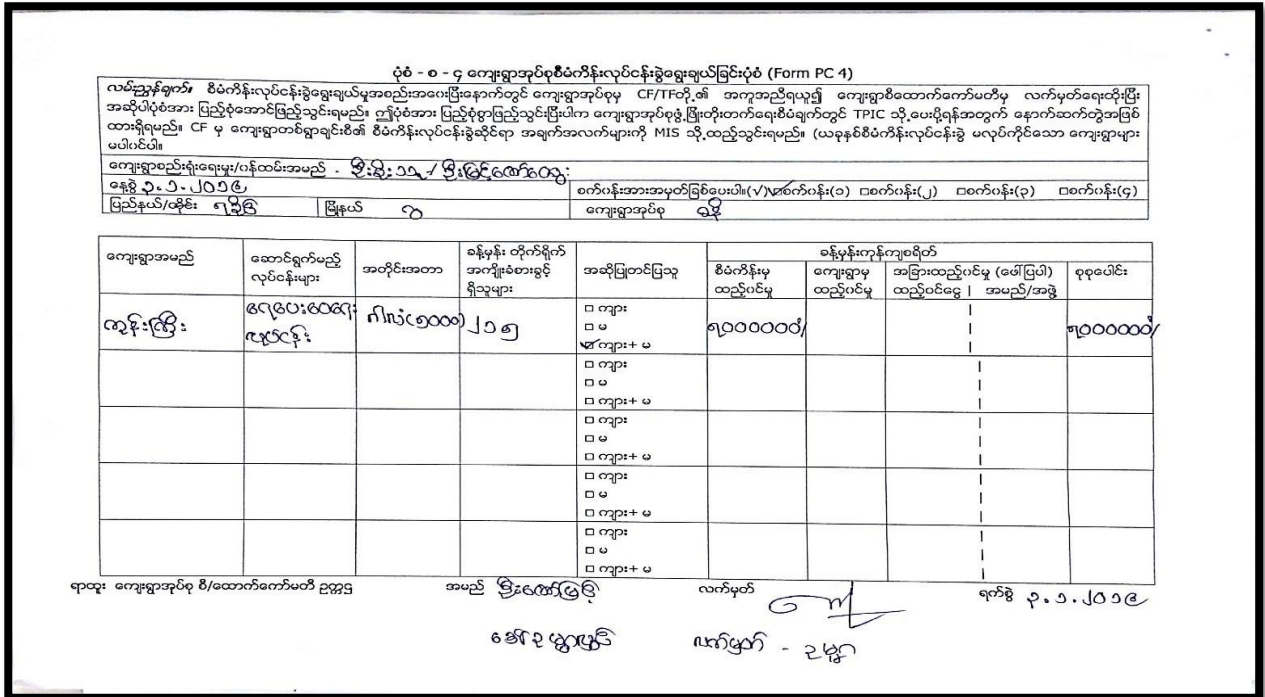 ပုံစံ - စ - ၄ ကျေးရွာအုပ်စုစီမံကိန်းလုပ်ငန်းခွဲရွေးချယ်ခြင်းပုံစံ (Form PC 4)
လမ်းညွှန်ချက်။ စီမံကိန်းလုပ်ငန်းခွဲရွေးချယ်မှုအစည်းအဝေးပြီးနောက်တွင် ကျေးရွာအုပ်စုမှ CF/TFတို့၏ အကူအညီရယူ၍ ကျေးရွာစီထောက်ကော်မတီမှ လက်မှတ်ရေးထိုးပြီး
အဆိုပါပုံစံအား ပြည့်စုံအောင်ဖြည့်သွင်းရမည်။ ဤပုံစံအား ပြည့်စုံစွာဖြည့်သွင်းပြီးပါက ကျေးရွာအုပ်စုဖွံ့ဖြိုးတိုးတက်ရေးစီမံချက်တွင် TPIC သို့ပေးပို့ရန်အတွက် နောက်ဆက်တွဲအဖြစ်
ထားရှိရမည်။ CF မှ ကျေးရွာတစ်ရွာချင်းစီ၏ စီမံကိန်းလုပ်ငန်းခွဲဆိုင်ရာ အချက်အလက်များကို MIS သို့ထည့်သွင်းရမည်။ (ယခုနှစ်စီမံကိန်းလုပ်ငန်းခွဲ မလုပ်ကိုင်သော ကျေးရွာများ
မပါဝင်ပါ။
ကျေးရွာစည်းရုံးရေးမှူး/ဝန်ထမ်းအမည် -
နေ့စွဲ ၃.၁.၂၀၁၉ စက်ဝန်းအားအမှတ်ခြစ်ပေးပါ။(√) ☑စက်ဝန်း(၁) □စက်ဝန်း(၂) □စက်ဝန်း(၃) □စက်ဝန်း(၄)
ပြည်နယ်/တိုင်း ရခိုင် မြို့နယ် ဂွ ကျေးရွာအုပ်စု
ကျေးရွာအမည် ဆောင်ရွက်မည့် လုပ်ငန်းများ အတိုင်းအတာ ခန့်မှန်း တိုက်ရိုက် အကျိုးခံစားခွင့် ရှိသူများ အဆိုပြုတင်ပြသူ ခန့်မှန်းကုန်ကျစရိတ်
စီမံကိန်းမှ ထည့်ဝင်မှု ကျေးရွာမှ ထည့်ဝင်မှု အခြားထည့်ဝင်မှု (ဖော်ပြပါ) ထည့်ဝင်ငွေ | အမည်/အဖွဲ့ စုစုပေါင်း
ကျွန်းကြီး ရေပေးဝေရေး လုပ်ငန်း ဂါလံ(၅၀၀၀) ၂၁၅ □ ကျား
□ မ
☑ ကျား+ မ
၇၀၀၀၀၀၀/ ၇၀၀၀၀၀၀/
□ ကျား
□ မ
□ ကျား+ မ
□ ကျား
□ မ
□ ကျား+ မ
□ ကျား
□ မ
□ ကျား+ မ
□ ကျား
□ မ
□ ကျား+ မ
ရာထူး ကျေးရွာအုပ်စု စီ/ထောက်ကော်မတီ ဥက္ကဌ အမည် လက်မှတ် ရက်စွဲ ၃.၁.၂၀၁၉
လက်မှတ် -